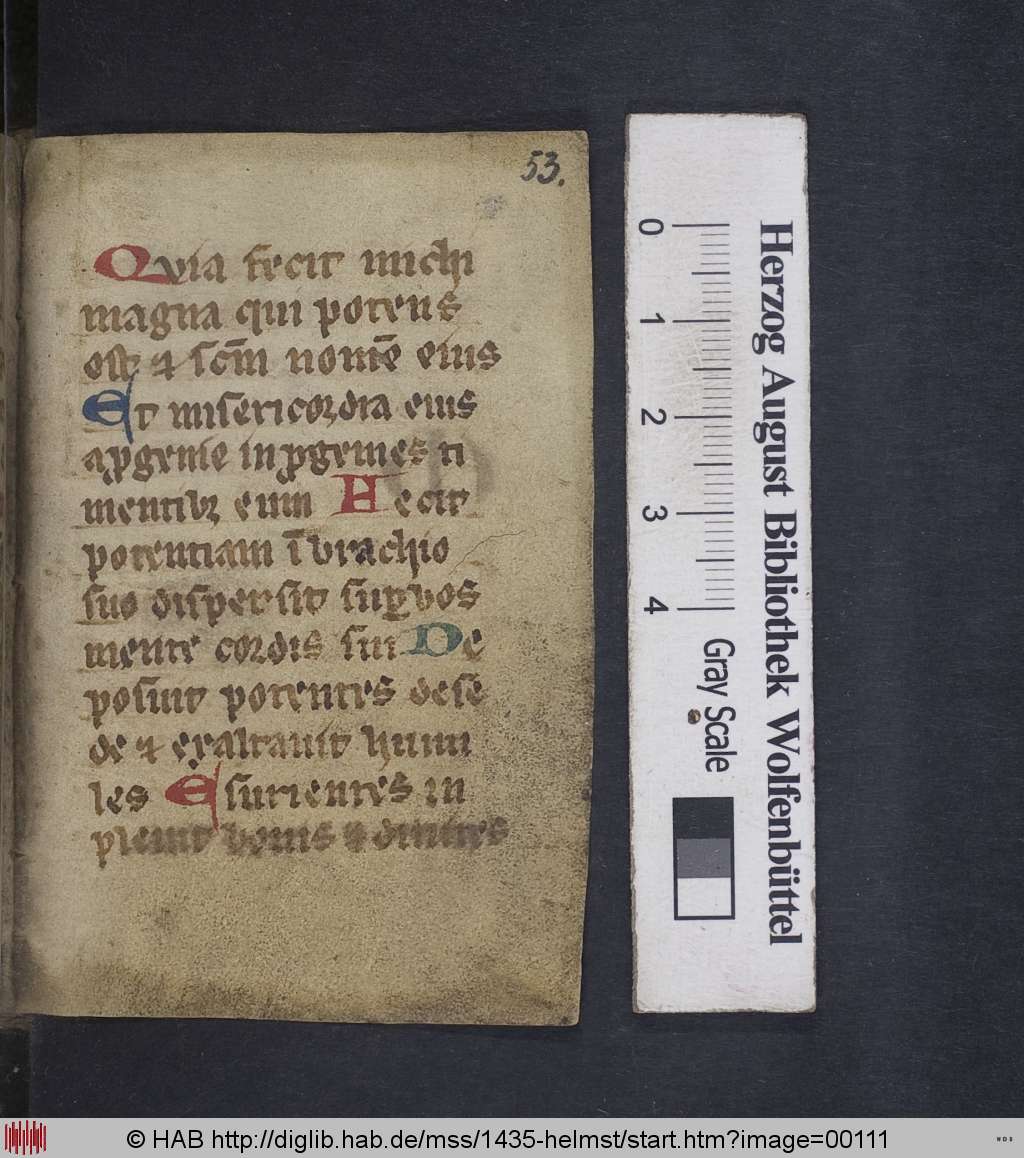 53.
Qvia fecit michi
magna qui potens
est ⁊ scm̄ nomē eius
Et misericordia eius
a ꝓgenie in ꝓgenies ti
mentibꝫ eum Fecit
potentiam ī brachio
suo dispersit suꝑbos
mente cordis sui De
posuit potentes de se
de ⁊ exaltauit humi
les Esurientes in
pleuit bonis ⁊ diuites
0 1 2 3 4
Gray Scale
Herzog August Bibliothek Wolfenbüttel
© HAB http://diglib.hab.de/mss/1435-helmst/start.htm?image=00111